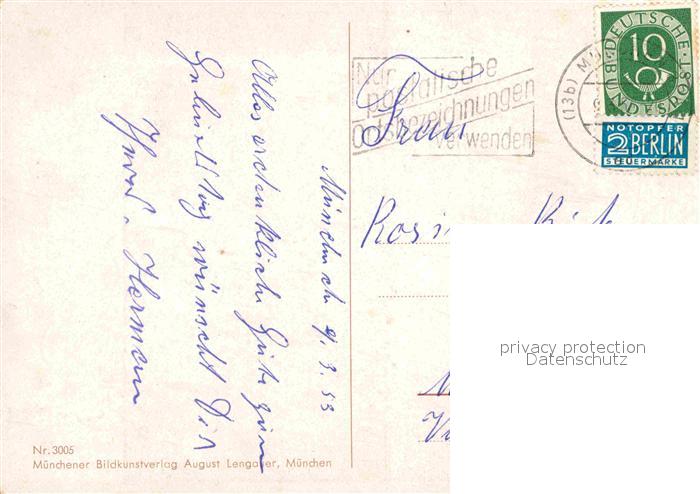 München 9/3.53
Alles erdenklich Gute zum
Geburtstag wünscht Dir
Hermann
Nr. 3005
Münchener Bildkunstverlag August Lengauer, München
Nur
postalische
Ortsbezeichnungen
verwenden
(13b) MÜ
DEUTSCHE BUNDESPOST
10
NOTOPFER
2 BERLIN
STEUERMARKE
Frau
privacy protection
Datenschutz